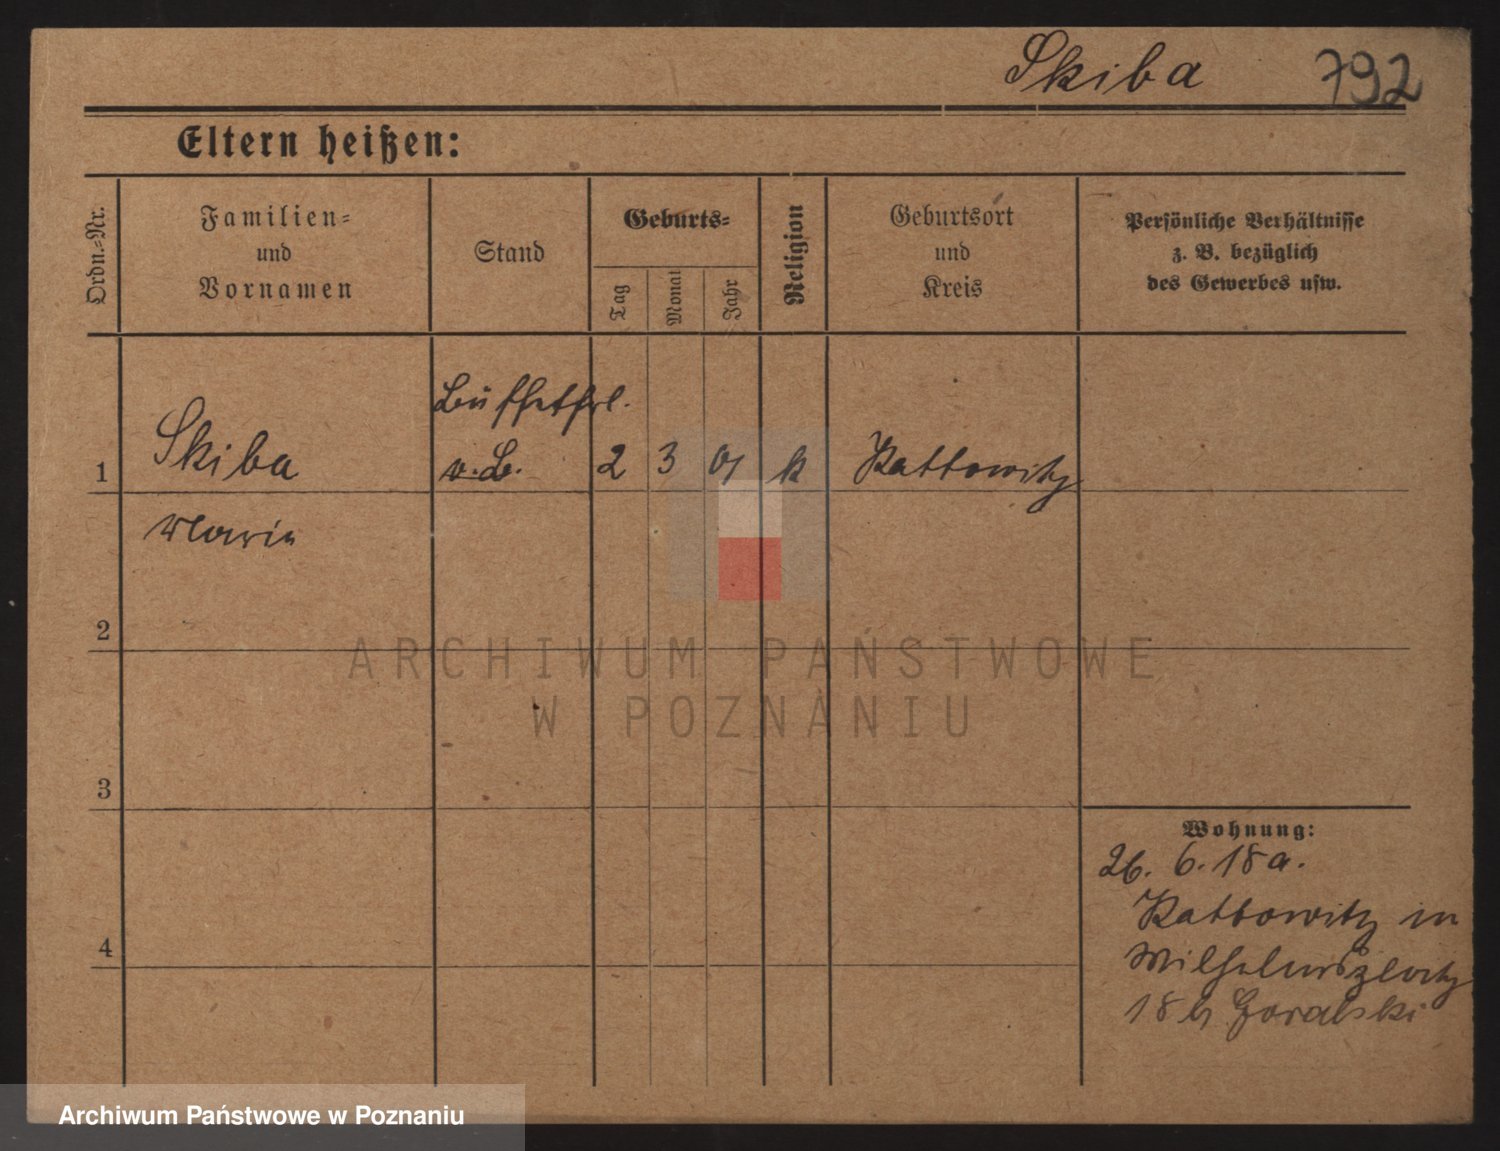 Skiba 792
Eltern heißen:
Ordn.=Nr.
Familien=
und
Vornamen
Stand
Geburts=
Tag
Monat
Jahr
Religion
Geburtsort
und
Kreis
Persönliche Verhältnisse
z. B. bezüglich
des Gewerbes usw.
Büffetfrl.
1 Skiba 2 3 k Kattowitz
Maria
2
ARCHIWUM PAŃSTWOWE
W POZNANIU
3
Wohnung:
26. 6. 18 a.
Kattowitz in
4
Wilhelmsplatz
18 b Goralski
Archiwum Państwowe w Poznaniu